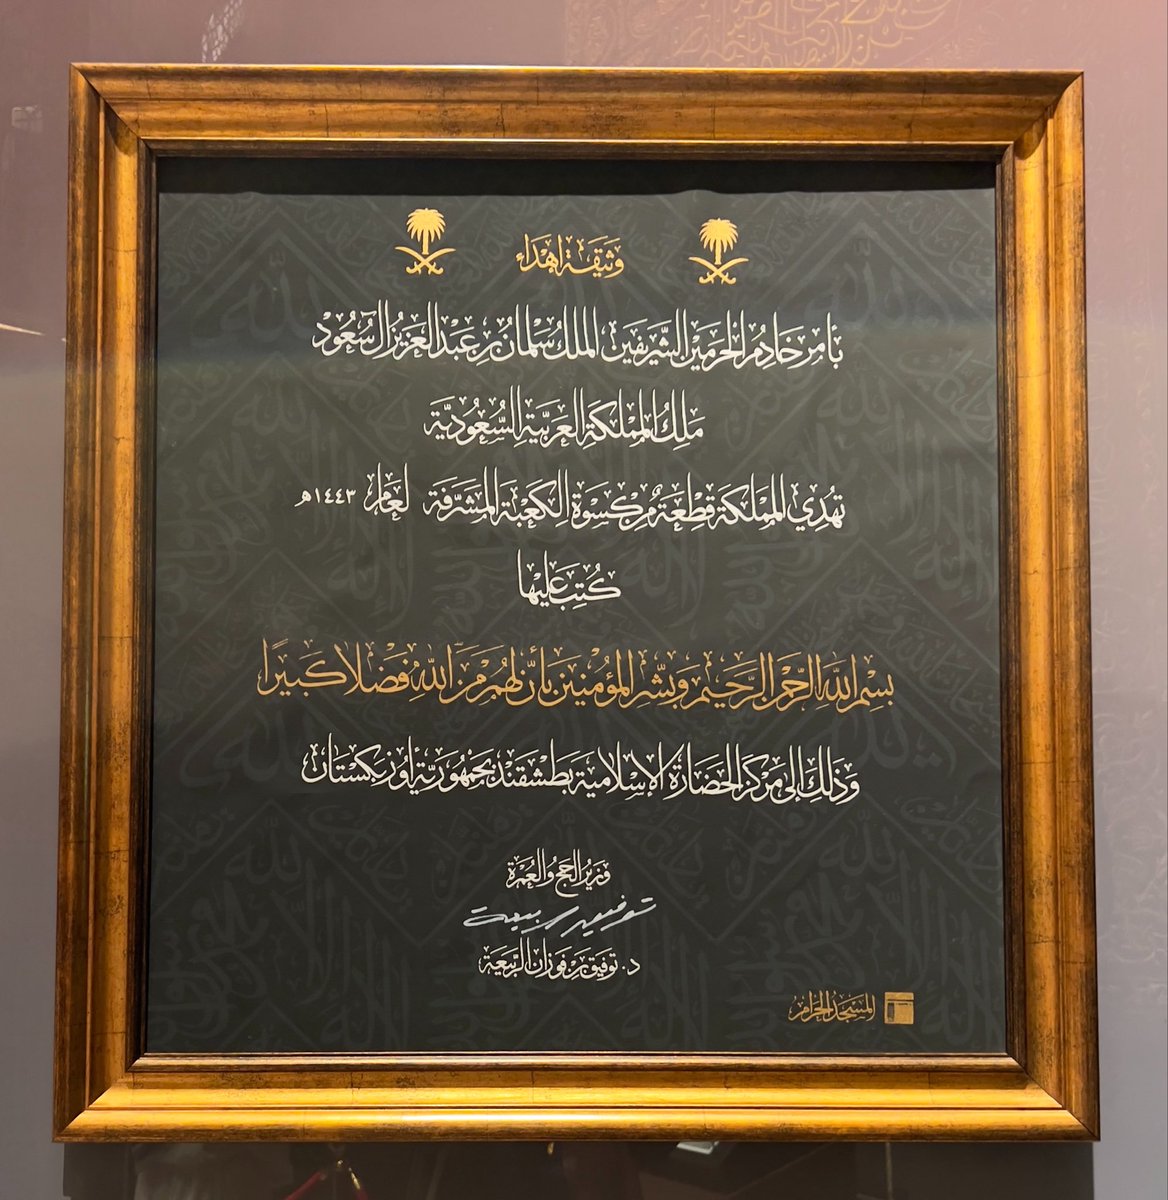 وثيقة إهداء
بأمر خادم الحرمين الشريفين الملك سلمان بن عبد العزيز آل سعود
ملك المملكة العربية السعودية
تهدي المملكة قطعة من كسوة الكعبة المشرفة لعام ١٤٤٣هـ
كتب عليها
بسم الله الرحمن الرحيم وبشر المؤمنين بأن لهم من الله فضلا كبيرا
وذلك إلى مركز الحضارة الإسلامية بطشقند بجمهورية أوزبكستان
وزير الحج والعمرة
د. توفيق بن فوزان الربيعة
المسجد الحرام